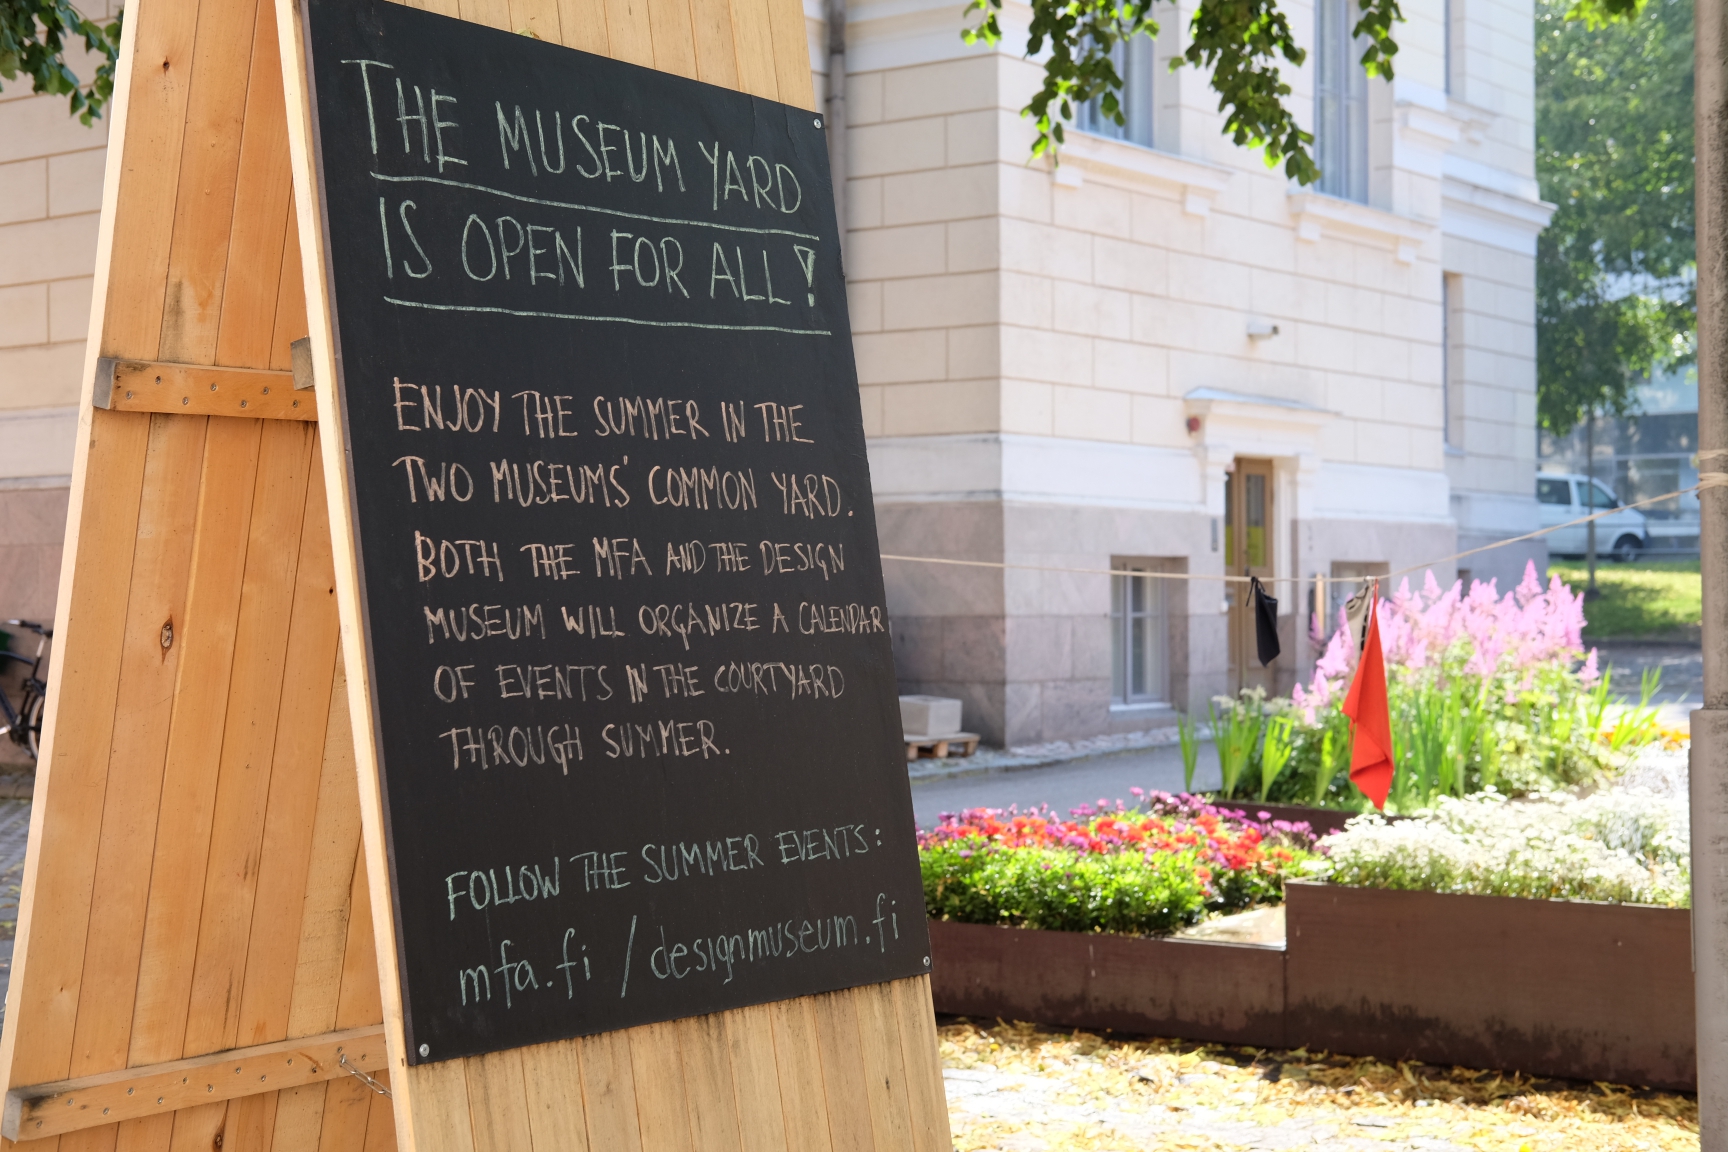 THE MUSEUM YARD
IS OPEN FOR ALL!
ENJOY THE SUMMER IN THE
TWO MUSEUMS' COMMON YARD.
BOTH THE MFA AND THE DESIGN
MUSEUM WILL ORGANIZE A CALENDAR
OF EVENTS IN THE COURTYARD
THROUGH SUMMER.
FOLLOW THE SUMMER EVENTS:
mfa.fi / designmuseum.fi